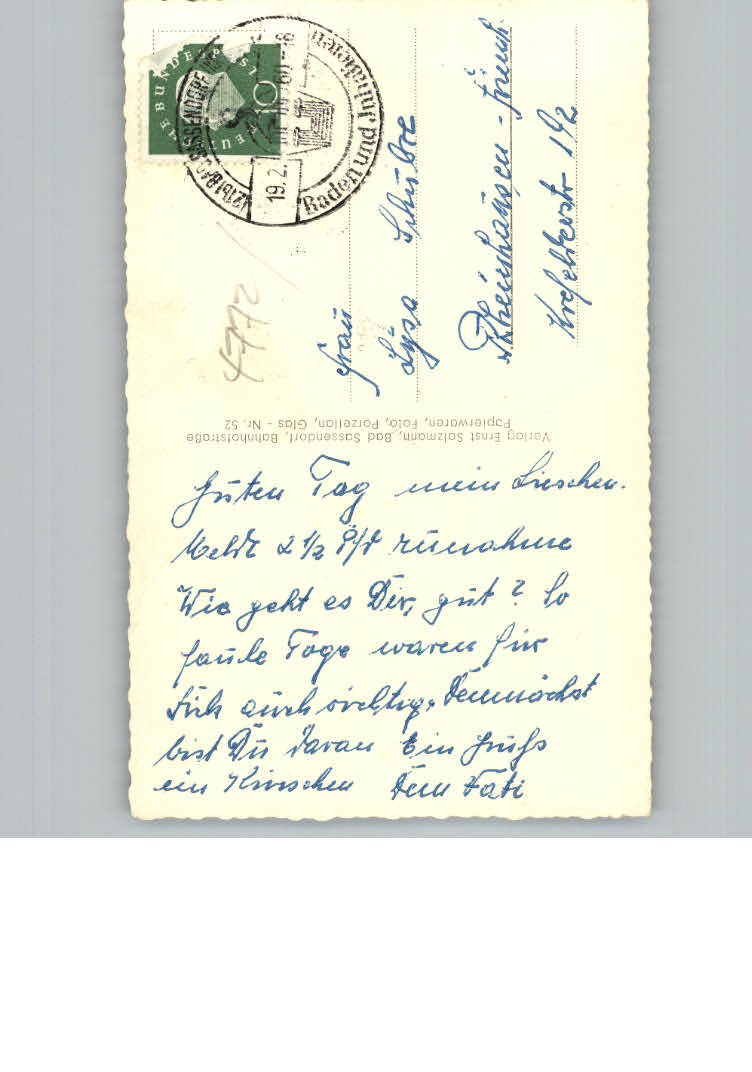 DEUTSCHE BUNDESPOST
10
BAD SASSENDORF
19.2. 60-18
Baden und Inhalieren
4772
Frau
Lysa Schulte
Rheinhausen-
Krefelderstr 192
Verlag Ernst Salzmann, Bad Sassendorf, Bahnhofstraße
Papierwaren, Foto, Porzellan, Glas - Nr. 52
Guten Tag mein Lieschen.
Melde 2 1/2 Pfd zunahme
Wie geht es Dir, gut? So
faule Tage waren für
Dich auch richtig. Demnächst
bist Du daran Ein Gruß
ein Küsschen Dein Vati